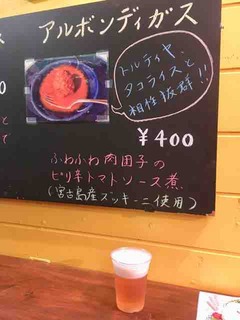 アルボンディガス
トルティヤ、
タコライスと
相性抜群!!
¥400
ふわふわ肉団子の
ピリ辛トマトソース煮
(宮古島産ズッキーニ使用)